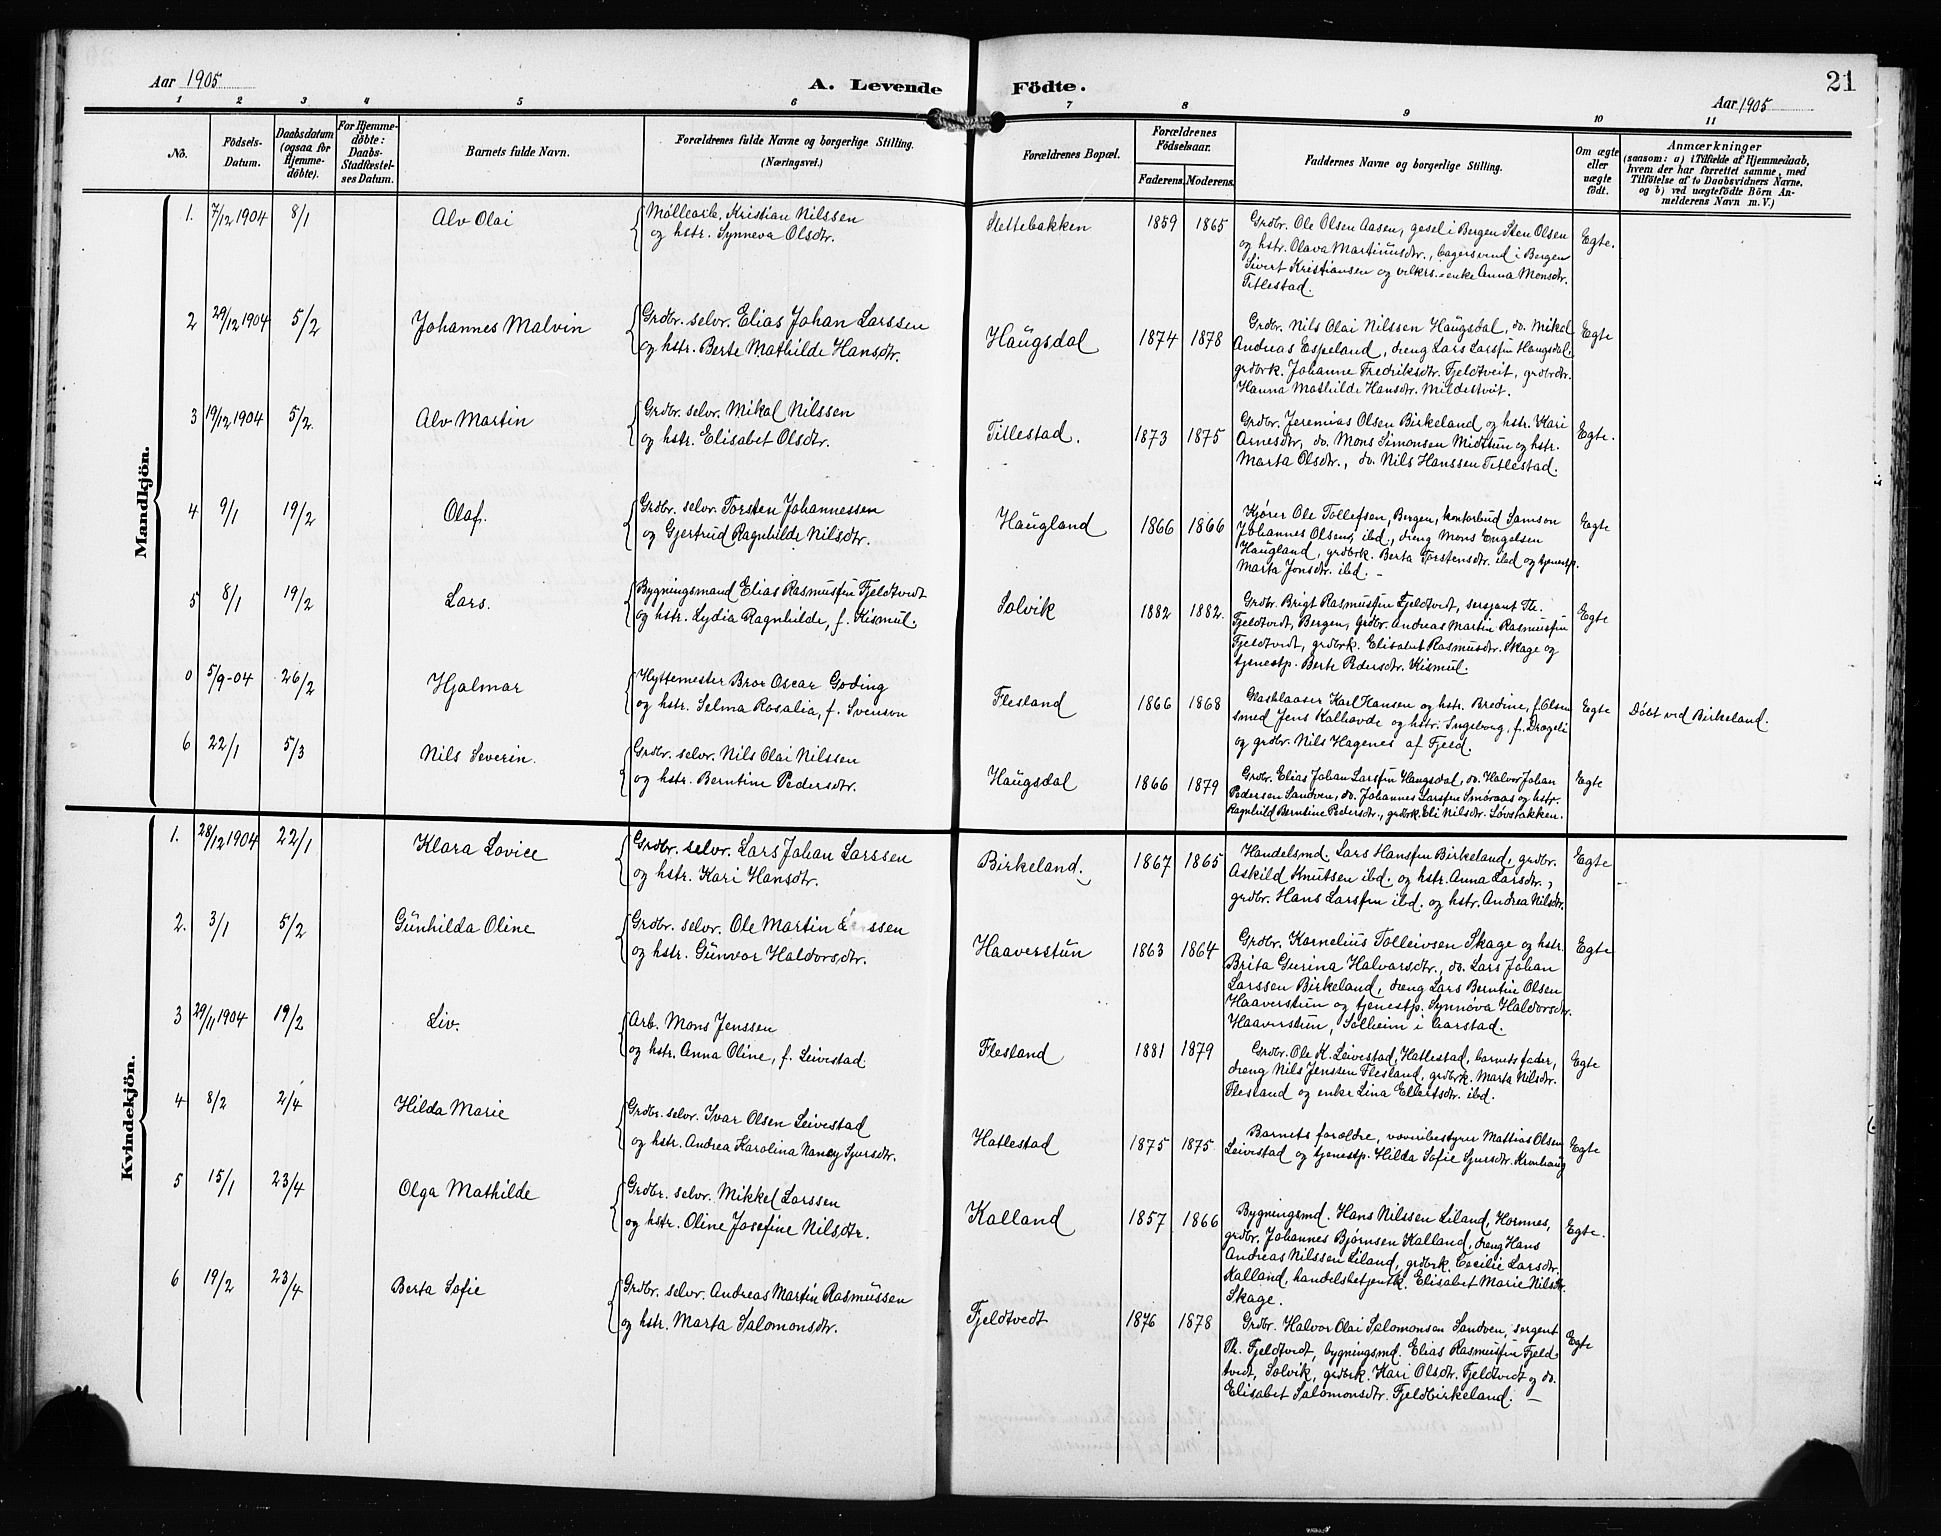 21
Aar 1905
A. Levende Födte.
Aar 1905
1 2 3 4 5 6 7 8 9 10 11
No.
Födsels-
Datum.
Daabsdatum
(ogsaa for
Hjemme-
døbte).
For Hjemme-
døbte:
Daabs-
Stadfæstel-
ses Datum.
Barnets fulde Navn.
Forældrenes fulde Navne og borgerlige Stilling.
(Næringsvei.)
Forældrenes Bopæl.
Forældrenes
Födselsaar.
Faderens. Moderens.
Faddernes Navne og borgerlige Stilling.
Om ægte
eller
uægte
födt.
Anmærkninger
(saasom: a) i Tilfælde af Hjemmedaab,
hvem der har forrettet samme, med
Tilföielse af to Daabsvidners Navne,
og b) ved uægtefödte Börn An-
melderens Navn m. V.)
Mandkjön.
1. 7/12 1904 8/1 Alv Olai
Møllearb. Kristian Nilssen
og hstr. Synneva Olsdtr.
Slettebakken 1859 1865
Grdbr. Ole Olsen Aasen, gesel i Bergen Sten Olsen
og hstr. Olava Martinusdtr., bagersvend i Bergen
Sivert Kristiansen og vilkrs.enke Anna Monsdtr.
Titlestad.
Egte.
2 29/12 1904 5/2 Johannes Malvin
Grdbr. selv. Elias Johan Larssen
og hstr. Berte Mathilde Hansdtr.
Haugsdal 1874 1878
Grdbr. Nils Olai Nilssen Haugsdal, do. Mikal
Andreas Espeland, dreng Lars Larssen Haugsdal,
grdbrk. Johanne Fredriksdtr. Fjeldtveit, grdbrdtr.
Hanna Mathilde Hansdtr. Mildestveit.
Egte
3 19/12 1904 5/2 Alv Martin
Grdbr. selv. Mikal Nilssen
og hstr. Elisabet Olsdtr.
Titlestad. 1873 1875
Grdbr. Jeremias Olsen Birkeland og hstr. Kari
Arnesdtr, do. Mons Simonsen Midttun og hstr.
Marta Olsdtr., do. Nils Hanssen Titlestad.
Egte.
4 9/1 19/2 Olaf.
Grdbr. selv. Torsten Johannessen
og Gjertrud Ragnhilde Nilsdtr.
Haugland 1866 1866
Kjører Ole Tollefsen, Bergen, kontorbud Samson
Johannes Olsen, ibd., dreng Mons Engelsen
Haugland, grdbrk. Berta Torstensdtr. ibd og tjenestp.
Marta Jonsdtr. ibd. –
Egte
5 8/1 19/2 Lars.
Bygningsmand Elias Rasmussen Fjeldtvedt
og hstr. Lydia Ragnhilde, f. Kismul.
Solvik 1882 1882.
Grdbr. Brigt Rasmussen Fjeldtvedt, sersjant Th.
Fjeldtvedt, Bergen, grdbr. Andreas Martin Rasmussen
Fjeldtvedt, grdbrk. Elisabet Rasmusdtr. Skage og
tjenestp. Berte Pedersdtr. Kismul.
Egte
0 5/9-04 26/2 Hjalmar
Hyttemester Bror Oscar Goding
og hstr. Selma Rosalia, f. Svenson
Flesland 1866 1868
Glasblaaser Karl Hansen og hstr. Bredine, f. Olsen
smed Jens Kalhavde og hstr. Ingeborg, f. Drageli
og grdbr. Nils Hagenes af Fjeld.
Egte Døbt ved Birkeland.
6 22/1 5/3 Nils Severin.
Grdbr. selv. Nils Olai Nilssen
og hstr. Berntine Pedersdtr.
Haugsdal 1866 1879
Grdbr. Elias Johan Larssen Haugsdal, do. Halvor Johan
Pedersen Sandven, do. Johannes Larssen Smøraas og hstr.
Ragnhild Berntine Pedersdtr., grdbrk. Eli Nilsdtr. Løvstakken.
Egte
Kvindekjön.
1. 28/12 1904 22/1 Klara Lovice
Grdbr. selv. Lars Johan Larssen
og hstr. Kari Hansdtr.
Birkeland. 1867 1865
Handelsmd. Lars Hanssen Birkeland, grdbr.
Askild Knutsen ibd. og hstr. Anna Larsdtr.,
grdbr. Hans Larssen ibd. og hstr. Andrea Nilsdtr.
Egte
2. 3/1 5/2 Gunhilda Oline
Grdbr. selv. Ole Martin Larssen
og hstr. Gunvor Haldorsdtr.
Haaverstun 1863 1864
Grdbr. Kornelius Tolleivsen Skage og hstr.
Brita Gurina Halvarsdtr., do. Lars Johan
Larssen Birkeland, dreng Lars Berntin Olsen
Haaverstun og tjenestp. Synnøva Haldorsdtr.
Haaverstun, Solheim i Aarstad.
Egte
3 29/11 1904 19/2 Liv.
Arb. Mons Jenssen
og hstr. Anna Oline, f. Leivestad.
Flesland 1881 1879
Grdbr. Ole K. Leivestad, Hatlestad, barnets fader,
dreng Nils Jenssen Flesland, grdbrk. Marta Nilsdtr.
Flesland og enke Lina Ellertsdtr. ibd.
Egte
4 8/2 2/4 Hilda Marie
Grdbr. selv. Ivar Olsen Leivestad
og hstr. Andrea Karolina Nancy Sjursdtr.
Hatlestad 1875 1875
Barnets forældre, væveribestyrer Mattias Olsen
Leivestad og tjenestp. Hilda Sofie Sjursdtr. Kronhaug
Egte
5 15/1 23/4 Olga Mathilde
Grdbr. selv. Mikkel Larssen
og hstr. Oline Josefine Nilsdtr.
Kalland 1857 1866
Bygningsmd. Hans Nilssen Liland, Hornnes,
grdbr. Johannes Bjørnsen Kalland, dreng Hans
Andreas Nilssen Liland, grdbrk. Cecilie Larsdtr.
Kalland, handelsbetjentk. Elisabet Marie Nilsdtr.
Skage.
Egte.
6 19/2 23/4 Berta Sofie
Grdbr. selv. Andreas Martin Rasmussen
og hstr. Marta Salomonsdtr.
Fjeldtvedt 1876 1878
Grdbr. Halvor Olai Salomonsen Sandven, sergent
Th. Fjeldtvedt, bygningsmd. Elias Rasmussen Fjeld
tvedt, Solvik, grdbrk. Kari Olsdtr. Fjeldtvedt og do.
Elisabet Salomonsdtr. Fjeldbirkeland. –
Egte